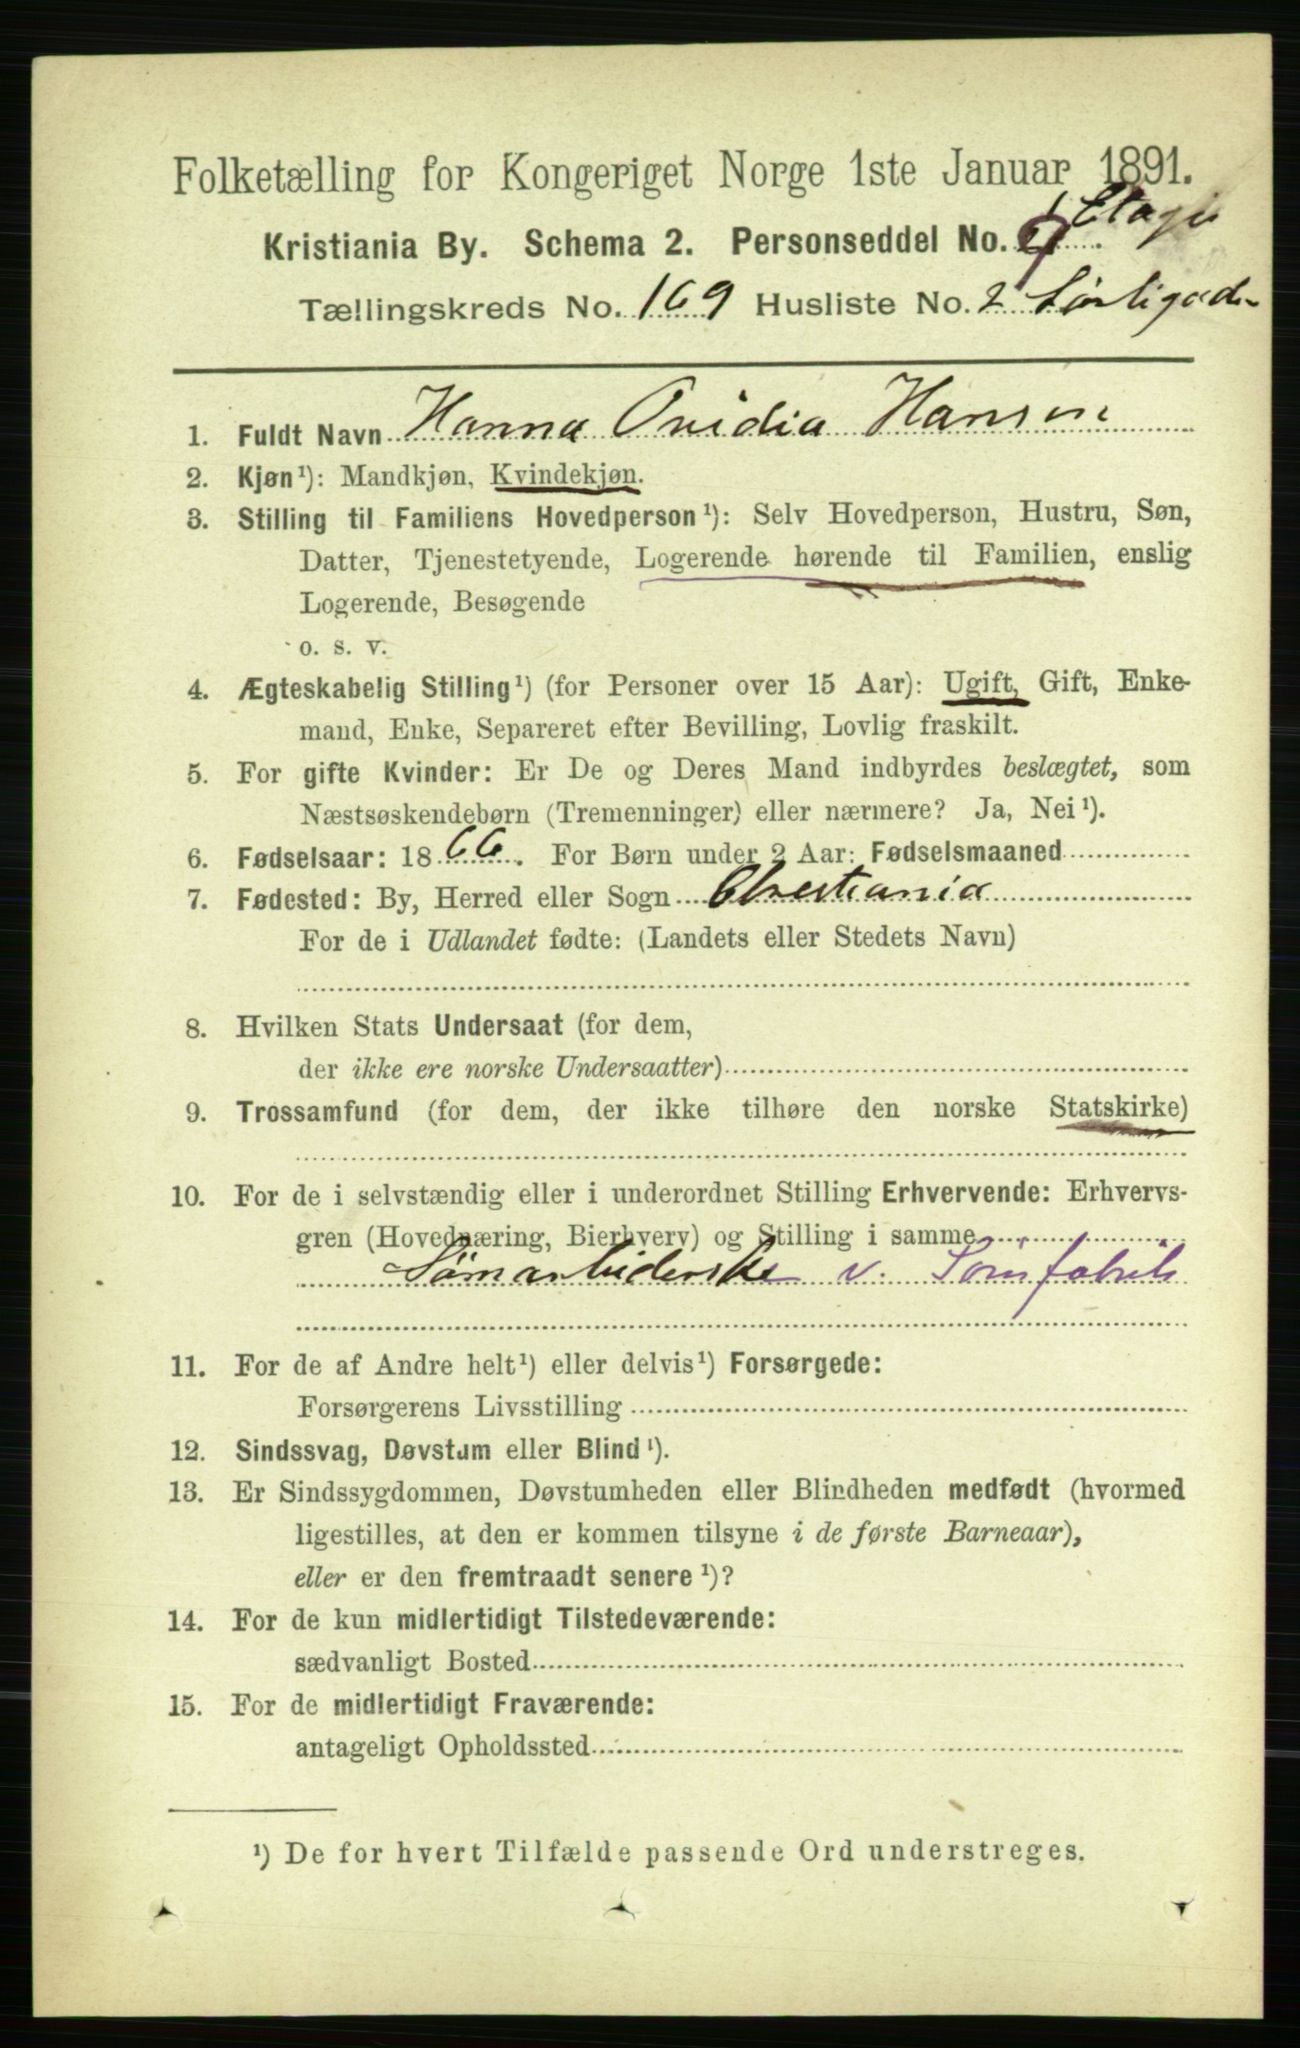 Folketælling for Kongeriget Norge 1ste Januar 1891.
Kristiania By. Schema 2. Personseddel No. 9 Etage
Tællingskreds No. 169 Husliste No. 2 Sørligaden
1. Fuldt Navn Hanna Ovidia Hansen
2. Kjøn¹): Mandkjøn, Kvindekjøn.
3. Stilling til Familiens Hovedperson¹): Selv Hovedperson, Hustru, Søn,
Datter, Tjenestetyende, Logerende hørende til Familien, enslig
Logerende, Besøgende
o. s. v.
4. Ægteskabelig Stilling¹) (for Personer over 15 Aar): Ugift, Gift, Enke-
mand, Enke, Separeret efter Bevilling, Lovlig fraskilt.
5. For gifte Kvinder: Er De og Deres Mand indbyrdes beslægtet, som
Næstsøskendebørn (Tremenninger) eller nærmere? Ja, Nei¹).
6. Fødselsaar: 1866. For Børn under 2 Aar: Fødselsmaaned
7. Fødested: By, Herred eller Sogn Christiania
For de i Udlandet fødte: (Landets eller Stedets Navn)
8. Hvilken Stats Undersaat (for dem,
der ikke ere norske Undersaatter)
9. Trossamfund (for dem, der ikke tilhøre den norske Statskirke)
10. For de i selvstændig eller i underordnet Stilling Erhvervende: Erhvervs-
gren (Hovednæring, Bierhverv) og Stilling i samme
Sømarbiderske v. Sømfabrik
11. For de af Andre helt¹) eller delvis¹) Forsørgede:
Forsørgerens Livsstilling
12. Sindssvag, Døvstum eller Blind¹).
13. Er Sindssygdommen, Døvstumheden eller Blindheden medfødt (hvormed
ligestilles, at den er kommen tilsyne i de første Barneaar),
eller er den fremtraadt senere¹)?
14. For de kun midlertidigt Tilstedeværende:
sædvanligt Bosted
15. For de midlertidigt Fraværende:
antageligt Opholdssted
¹) De for hvert Tilfælde passende Ord understreges.